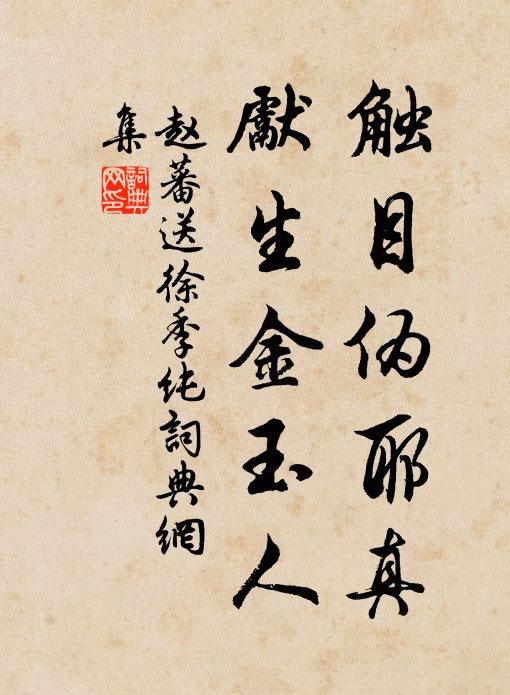 触目伪耶真
獻生金玉人
赵蕃送徐季纯詞典網
集
詞典
网印